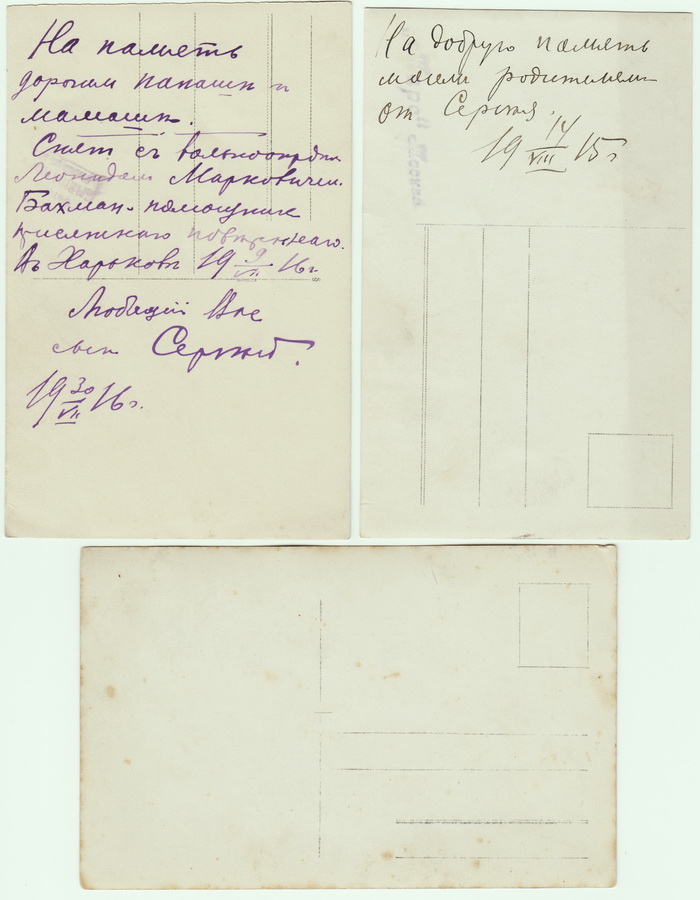 На память
дорогим папаши и
мамаши.
Снят съ вольноопред.
Леонидом Марковичем.
Бахман - помощник
Въ Харькове 19 9/VII 16 г.
Любящий Вас
сын Сергей.
19 30/VII 16 г.
На добрую память
моим родителям
от Сергея.
19 14/VIII 15 г